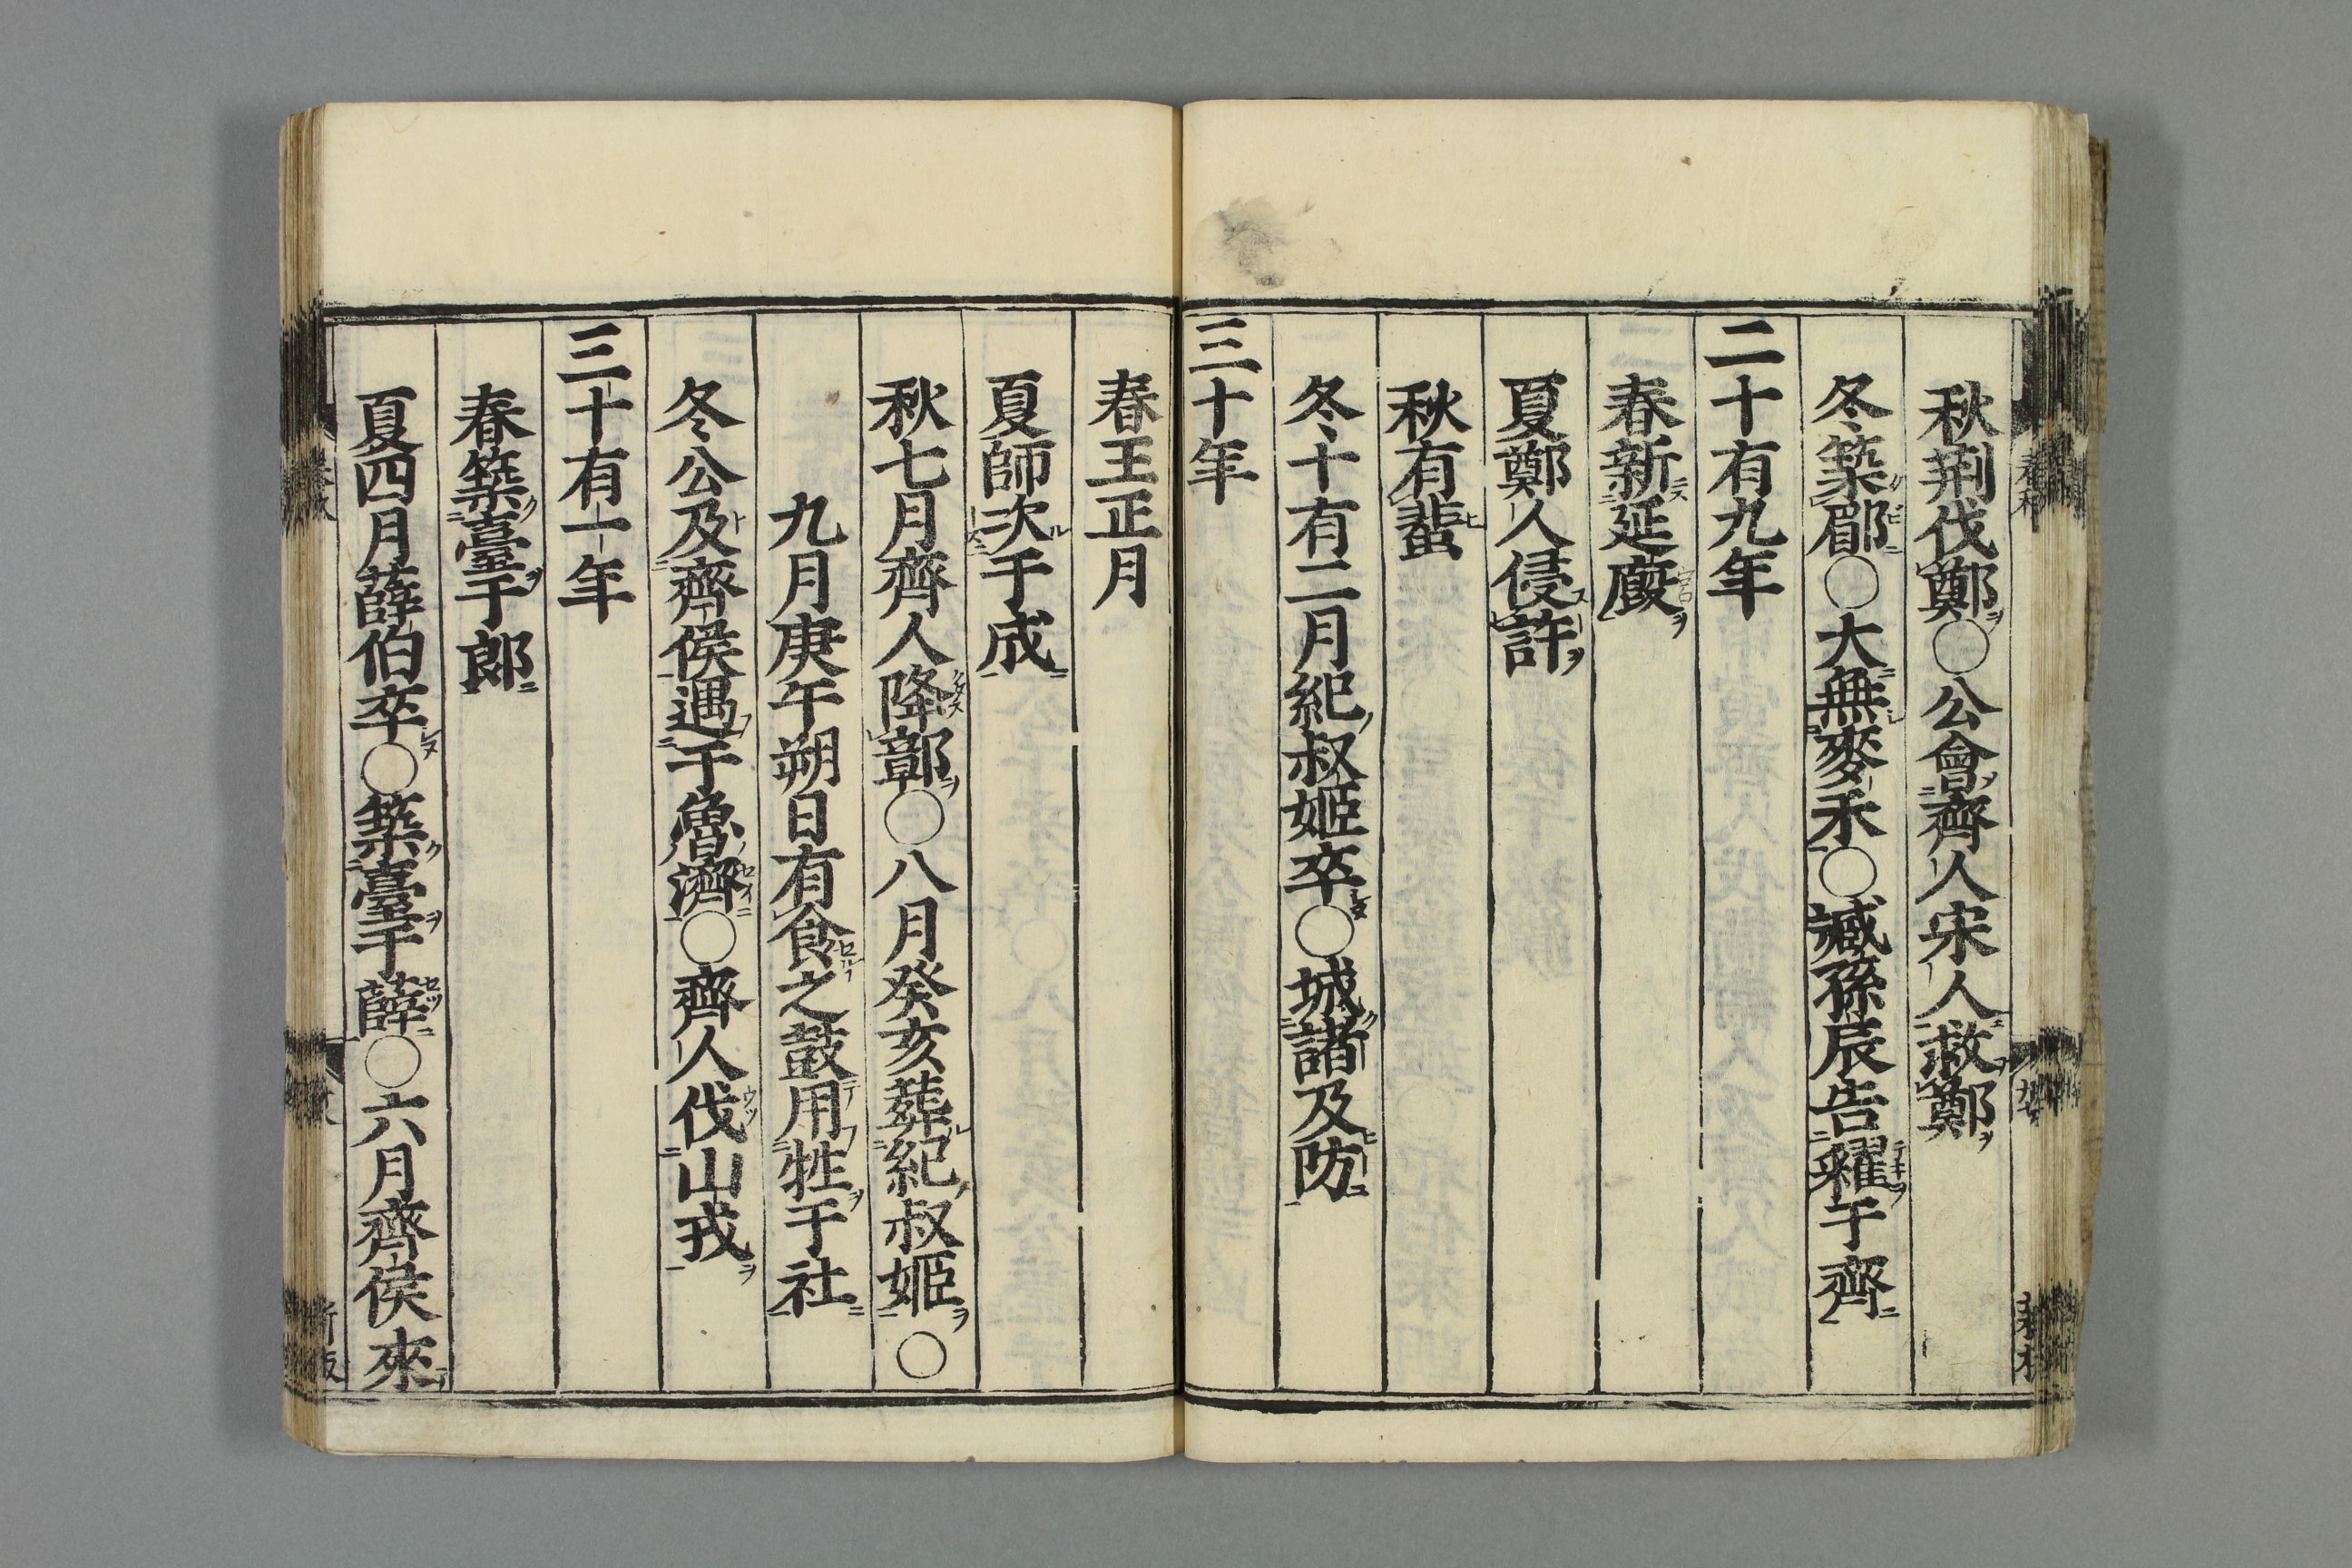 秋荆伐鄭○公會齊人宋人救鄭
冬築郿○大無麥禾○臧孫辰告糴于齊
二十有九年
春新延廄
夏鄭人侵許
秋有蜚
冬十有二月紀叔姬卒○城諸及防
三十年
春王正月
夏師次于成
秋七月齊人降鄣○八月癸亥葬紀叔姬○
九月庚午朔日有食之鼓用牲于社
冬公及齊侯遇于魯濟○齊人伐山戎
三十有一年
春築臺于郎
夏四月薛伯卒○築臺于薛○六月齊侯來